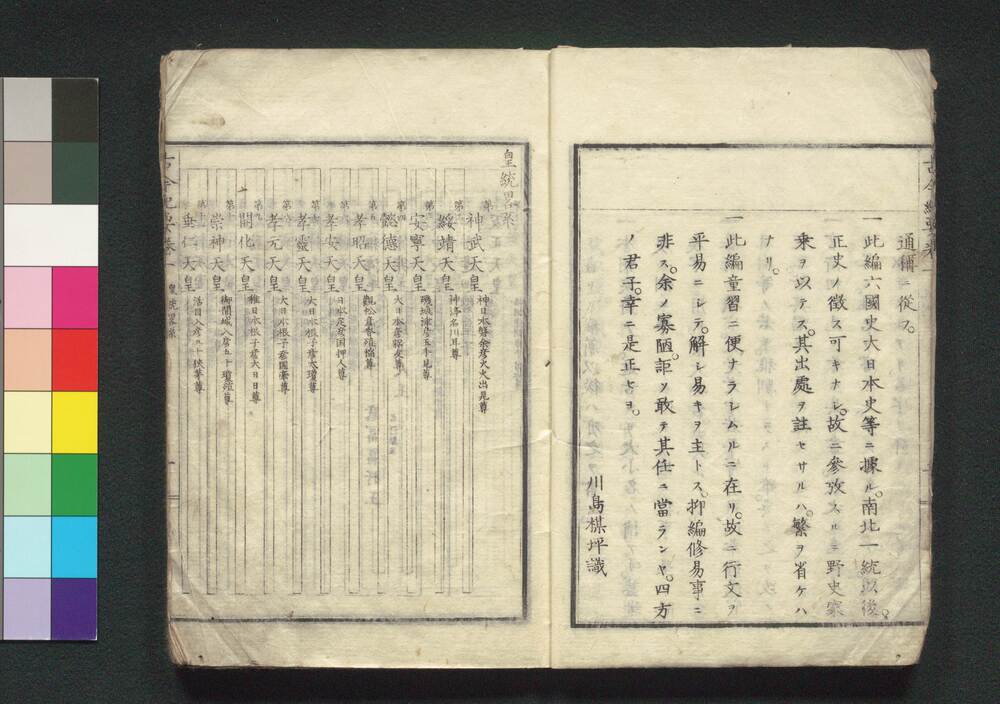 通稱ニ從フ。
一此編六國史大日本史等ニ據ル。南北一統以後。
正史ノ徴ス可キナシ。故ニ參攷スルニ野史家
乗ヲ以テス。其出處ヲ註セサルハ。繁ヲ省ケハ
ナリ。
一此編童習ニ便ナラシムルニ在リ。故ニ行文ヲ
平易ニシテ。解シ易キヲ主トス。抑編修易事ニ
非ス。余ノ寡陋。詎ソ敢テ其任ニ當ランヤ。四方
ノ君子。幸ニ是正セヨ。
川島楳坪識
皇統畧系
第一 神武天皇 神日本磐余彦火火出見尊
第二 綏靖天皇 神渟名川耳尊
第三 安寧天皇 磯城津彦玉手見尊
第四 懿德天皇 大日本彦耜友尊
第五 孝昭天皇 觀松彦香殖稻尊
第六 孝安天皇 日本足彦国押人尊
第七 孝靈天皇 大日本根子彦太瓊尊
第八 孝元天皇 大日本根子彦国牽尊
第九 開化天皇 稚日本根子彦大日日尊
第十 崇神天皇 御間城入彦五十瓊殖尊
第十一 垂仁天皇 活目入彦五十狹茅尊
皇統畧系